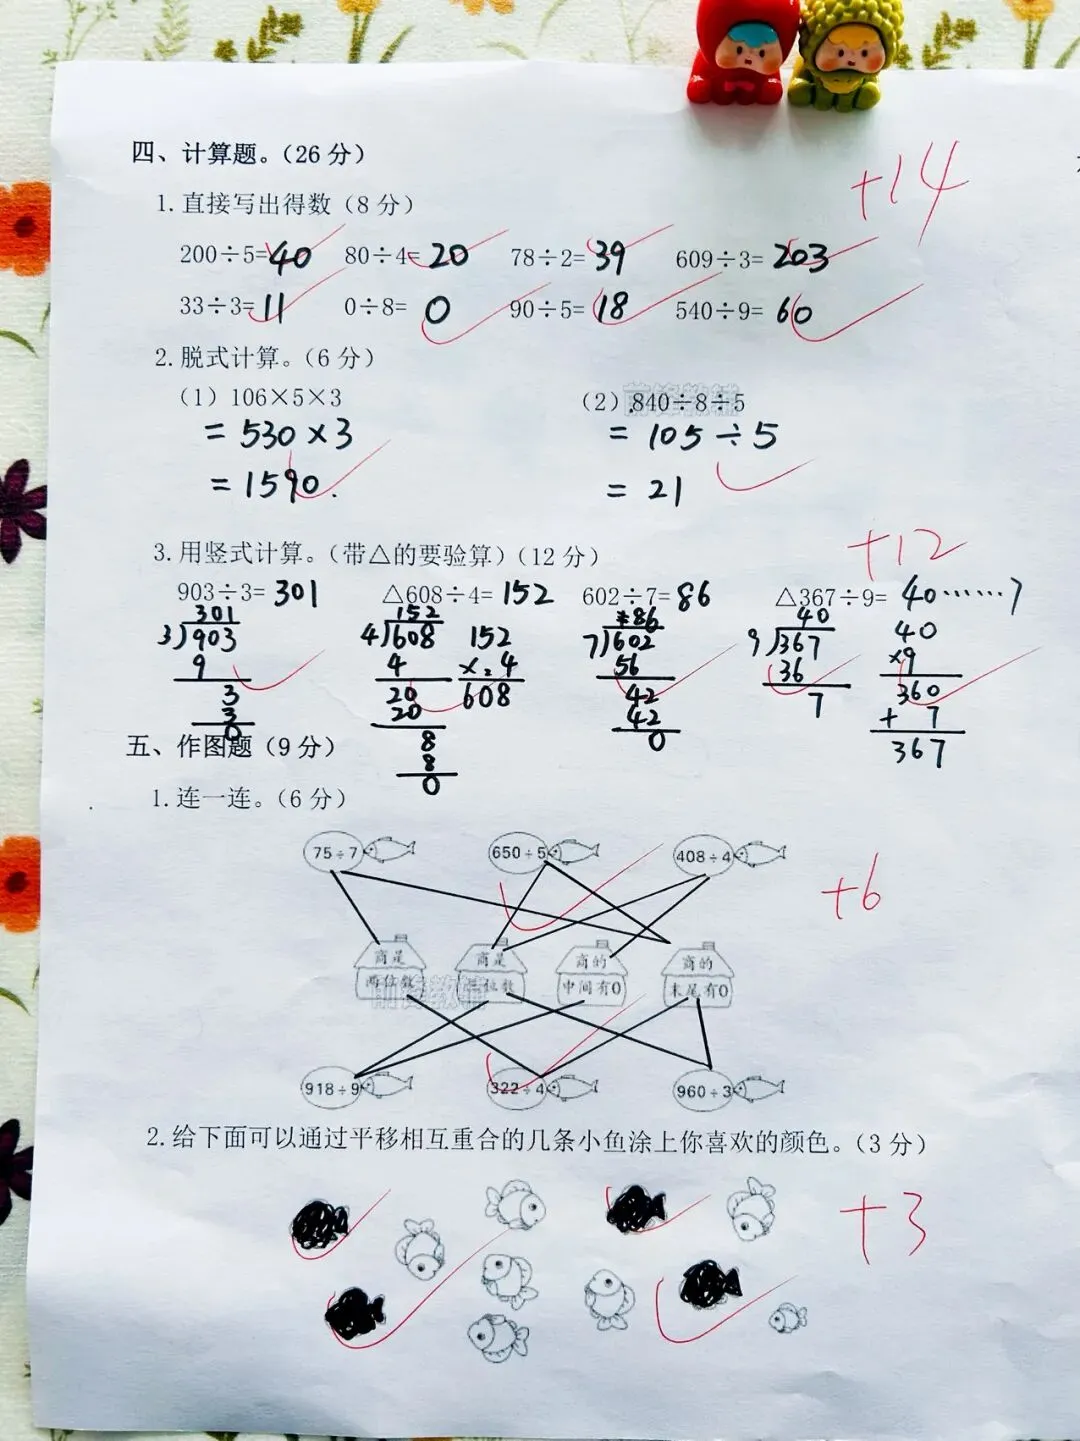 四、计算题。(26分)
+14
1.直接写出得数(8分)
200÷5=40 80÷4=20 78÷2=39 609÷3=203
33÷3=11 0÷8=0 90÷5=18 540÷9=60
2.脱式计算。(6分)
(1) 106×5×3 (2) 840÷8÷5
=530×3 =105÷5
=1590. =21
前锋教辅
3.用竖式计算。(带△的要验算)(12分)
+12
903÷3=301 △608÷4=152 602÷7=86 △367÷9=40……7
301 152 86 40 40
3)903 4)608 152 7)602 9)367 ×9
9 4 ×4 56 36 360
3 20 608 42 7 + 7
3 20 42 367
0 8 0
8
0
五、作图题(9分)
1.连一连。(6分)
75÷7 650÷5 408÷4
+6
商是 商是 商的 商的
两位数 三位数 中间有0 末尾有0
前锋教辅
918÷9 322÷4 960÷3
2.给下面可以通过平移相互重合的几条小鱼涂上你喜欢的颜色。(3分)
+3